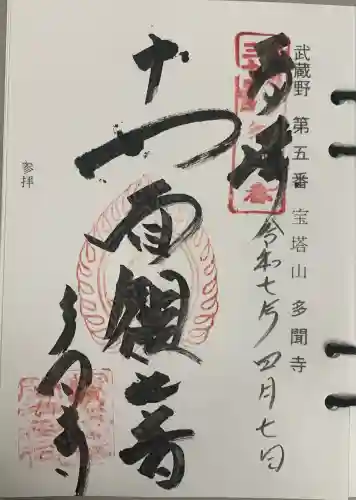 武蔵野 第五番 宝塔山 多聞寺
奉拝
令和七年 四月七日
十一面観音
多聞寺
参拝